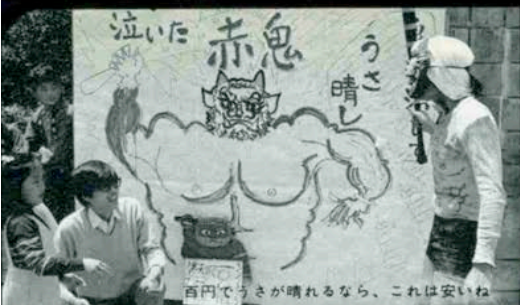 泣いた赤鬼
うさ晴し
百円でうさが晴れるなら、これは安いね